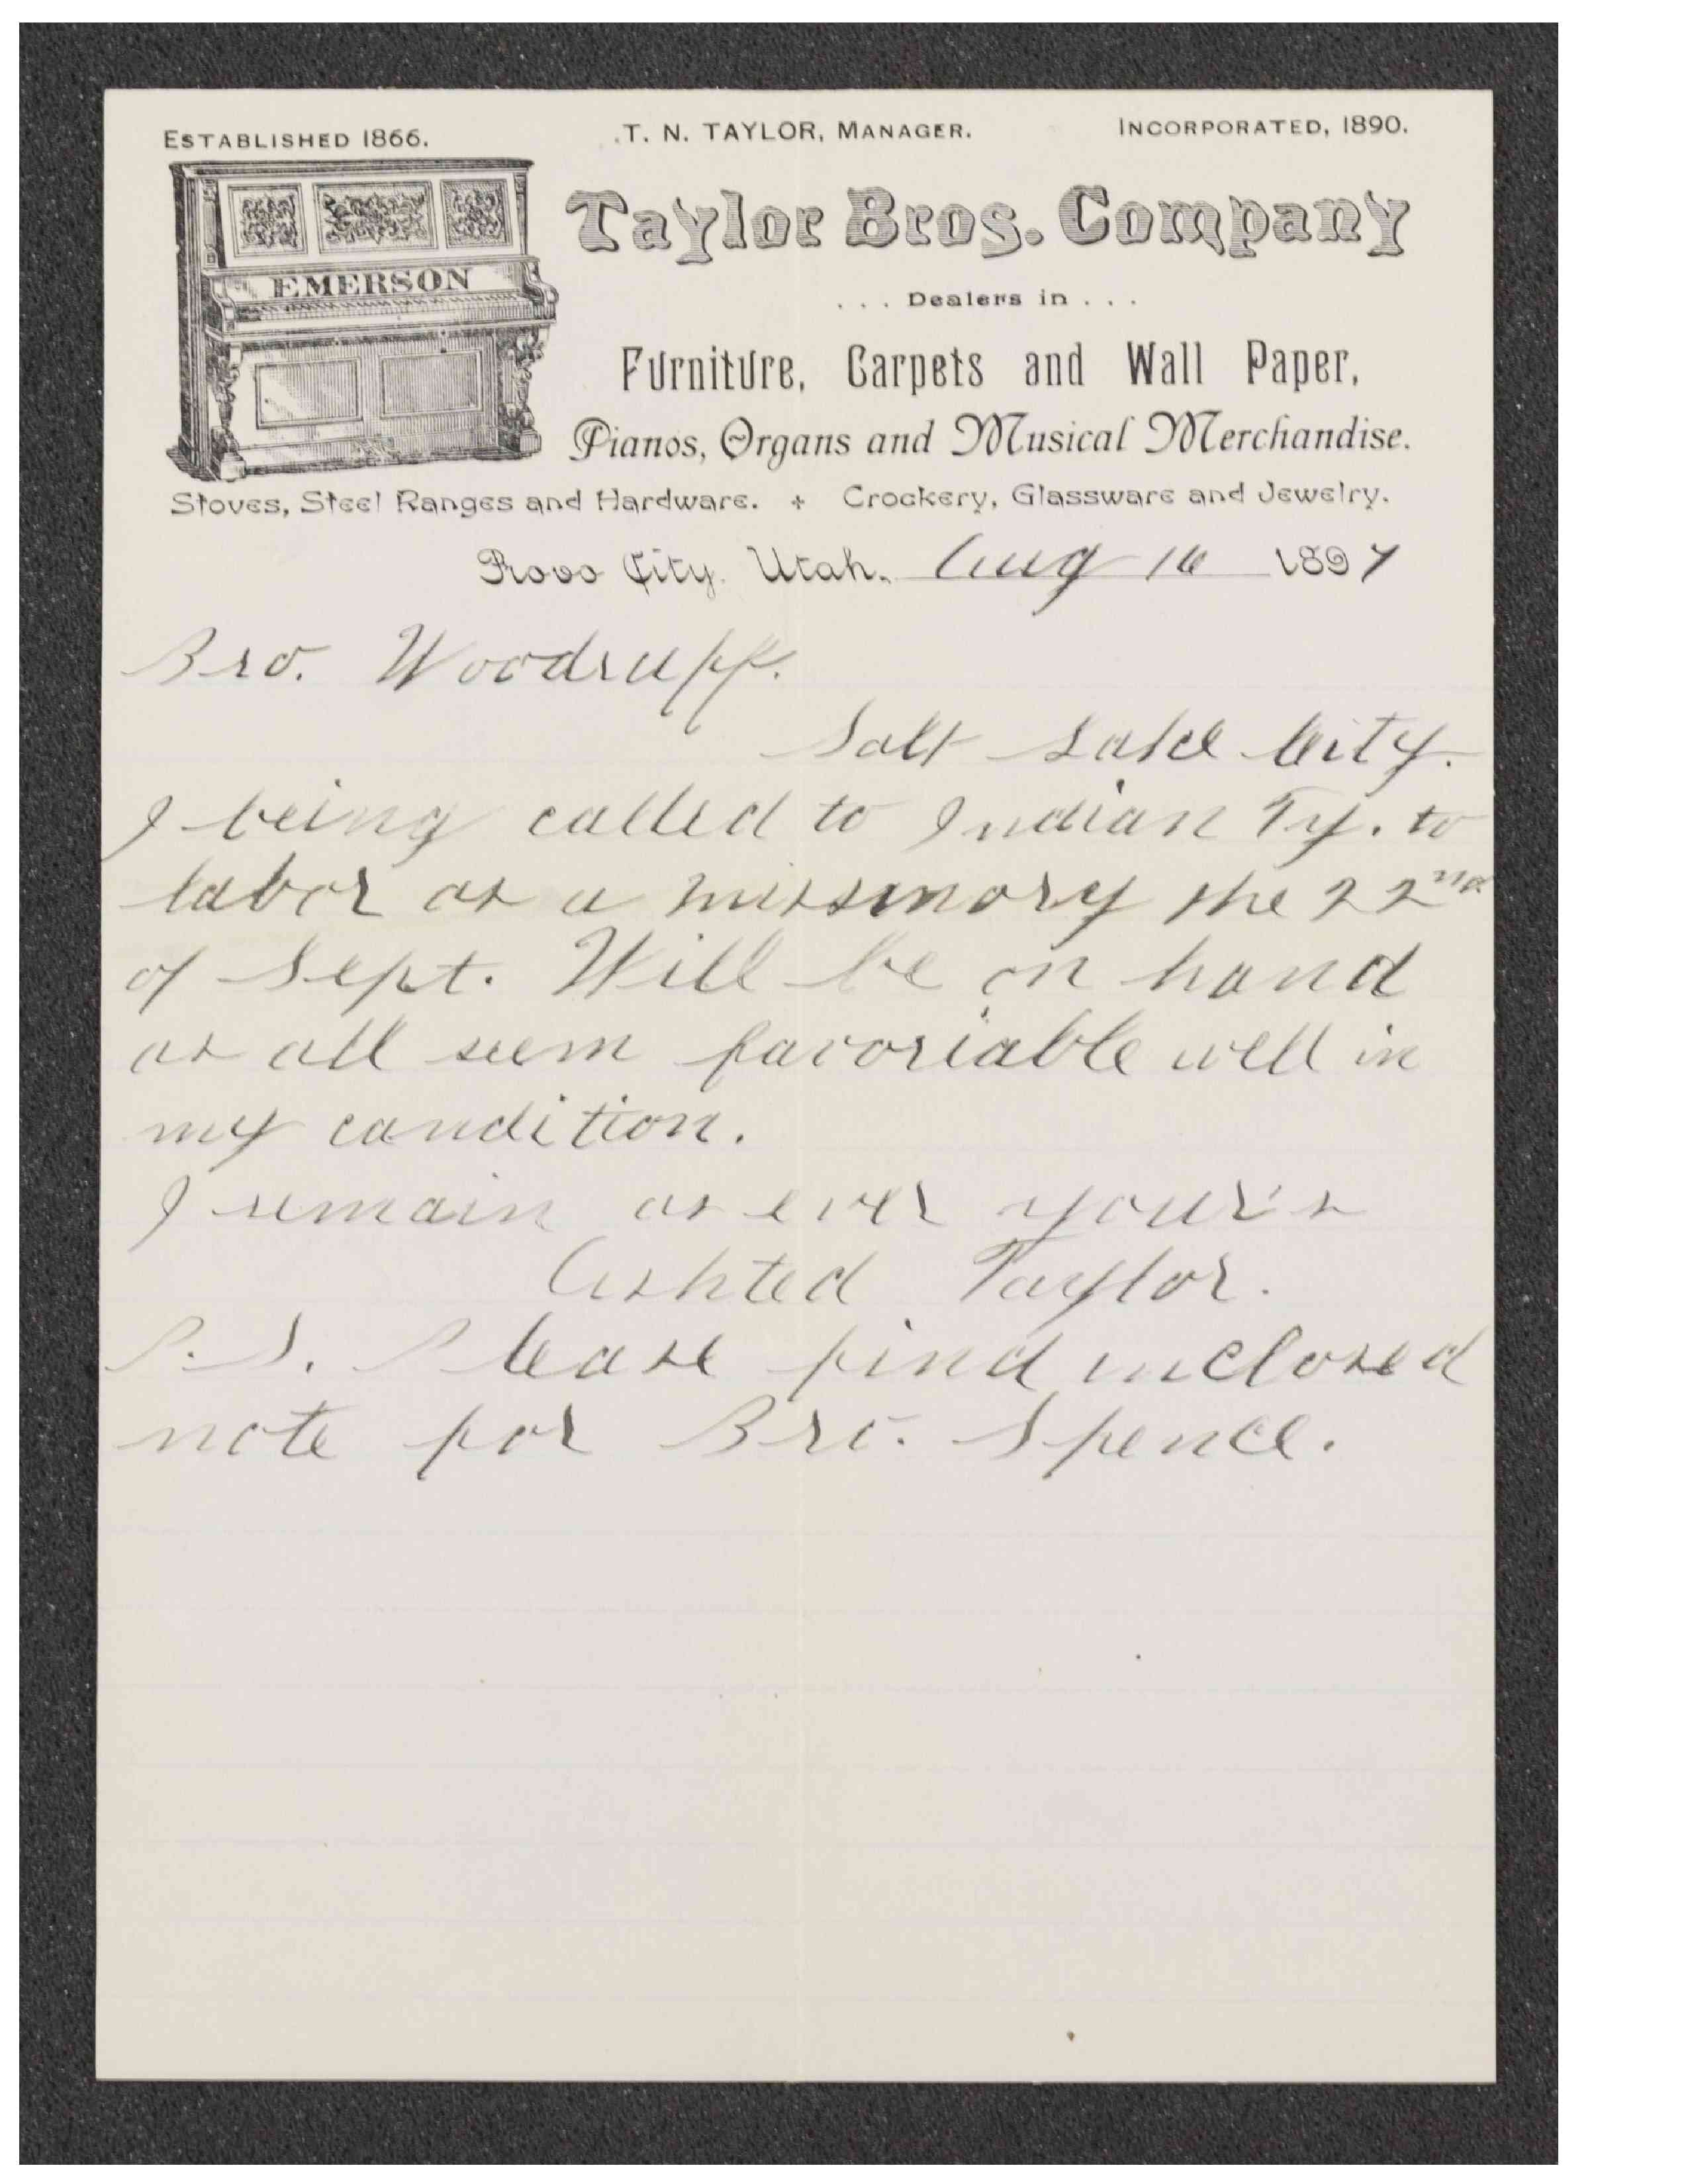 ESTABLISHED 1866. T. N. TAYLOR, MANAGER. INCORPORATED, 1890.
EMERSON
Taylor Bros. Company
... Dealers in ...
Furniture, Carpets and Wall Paper,
Pianos, Organs and Musical Merchandise.
Stoves, Steel Ranges and Hardware. + Crockery, Glassware and Jewelry.
Provo City, Utah, Aug 16 1897
Bro. Woodruff.
Salt Lake City.
I being called to Indian Ty. to
labor as a missinory the 22nd
of Sept. Will be on hand
as all seem favoriable well in
my condition.
I remain as ever your's
Ashted Taylor.
P.S. Please find inclosed
note for Bro. Spence.